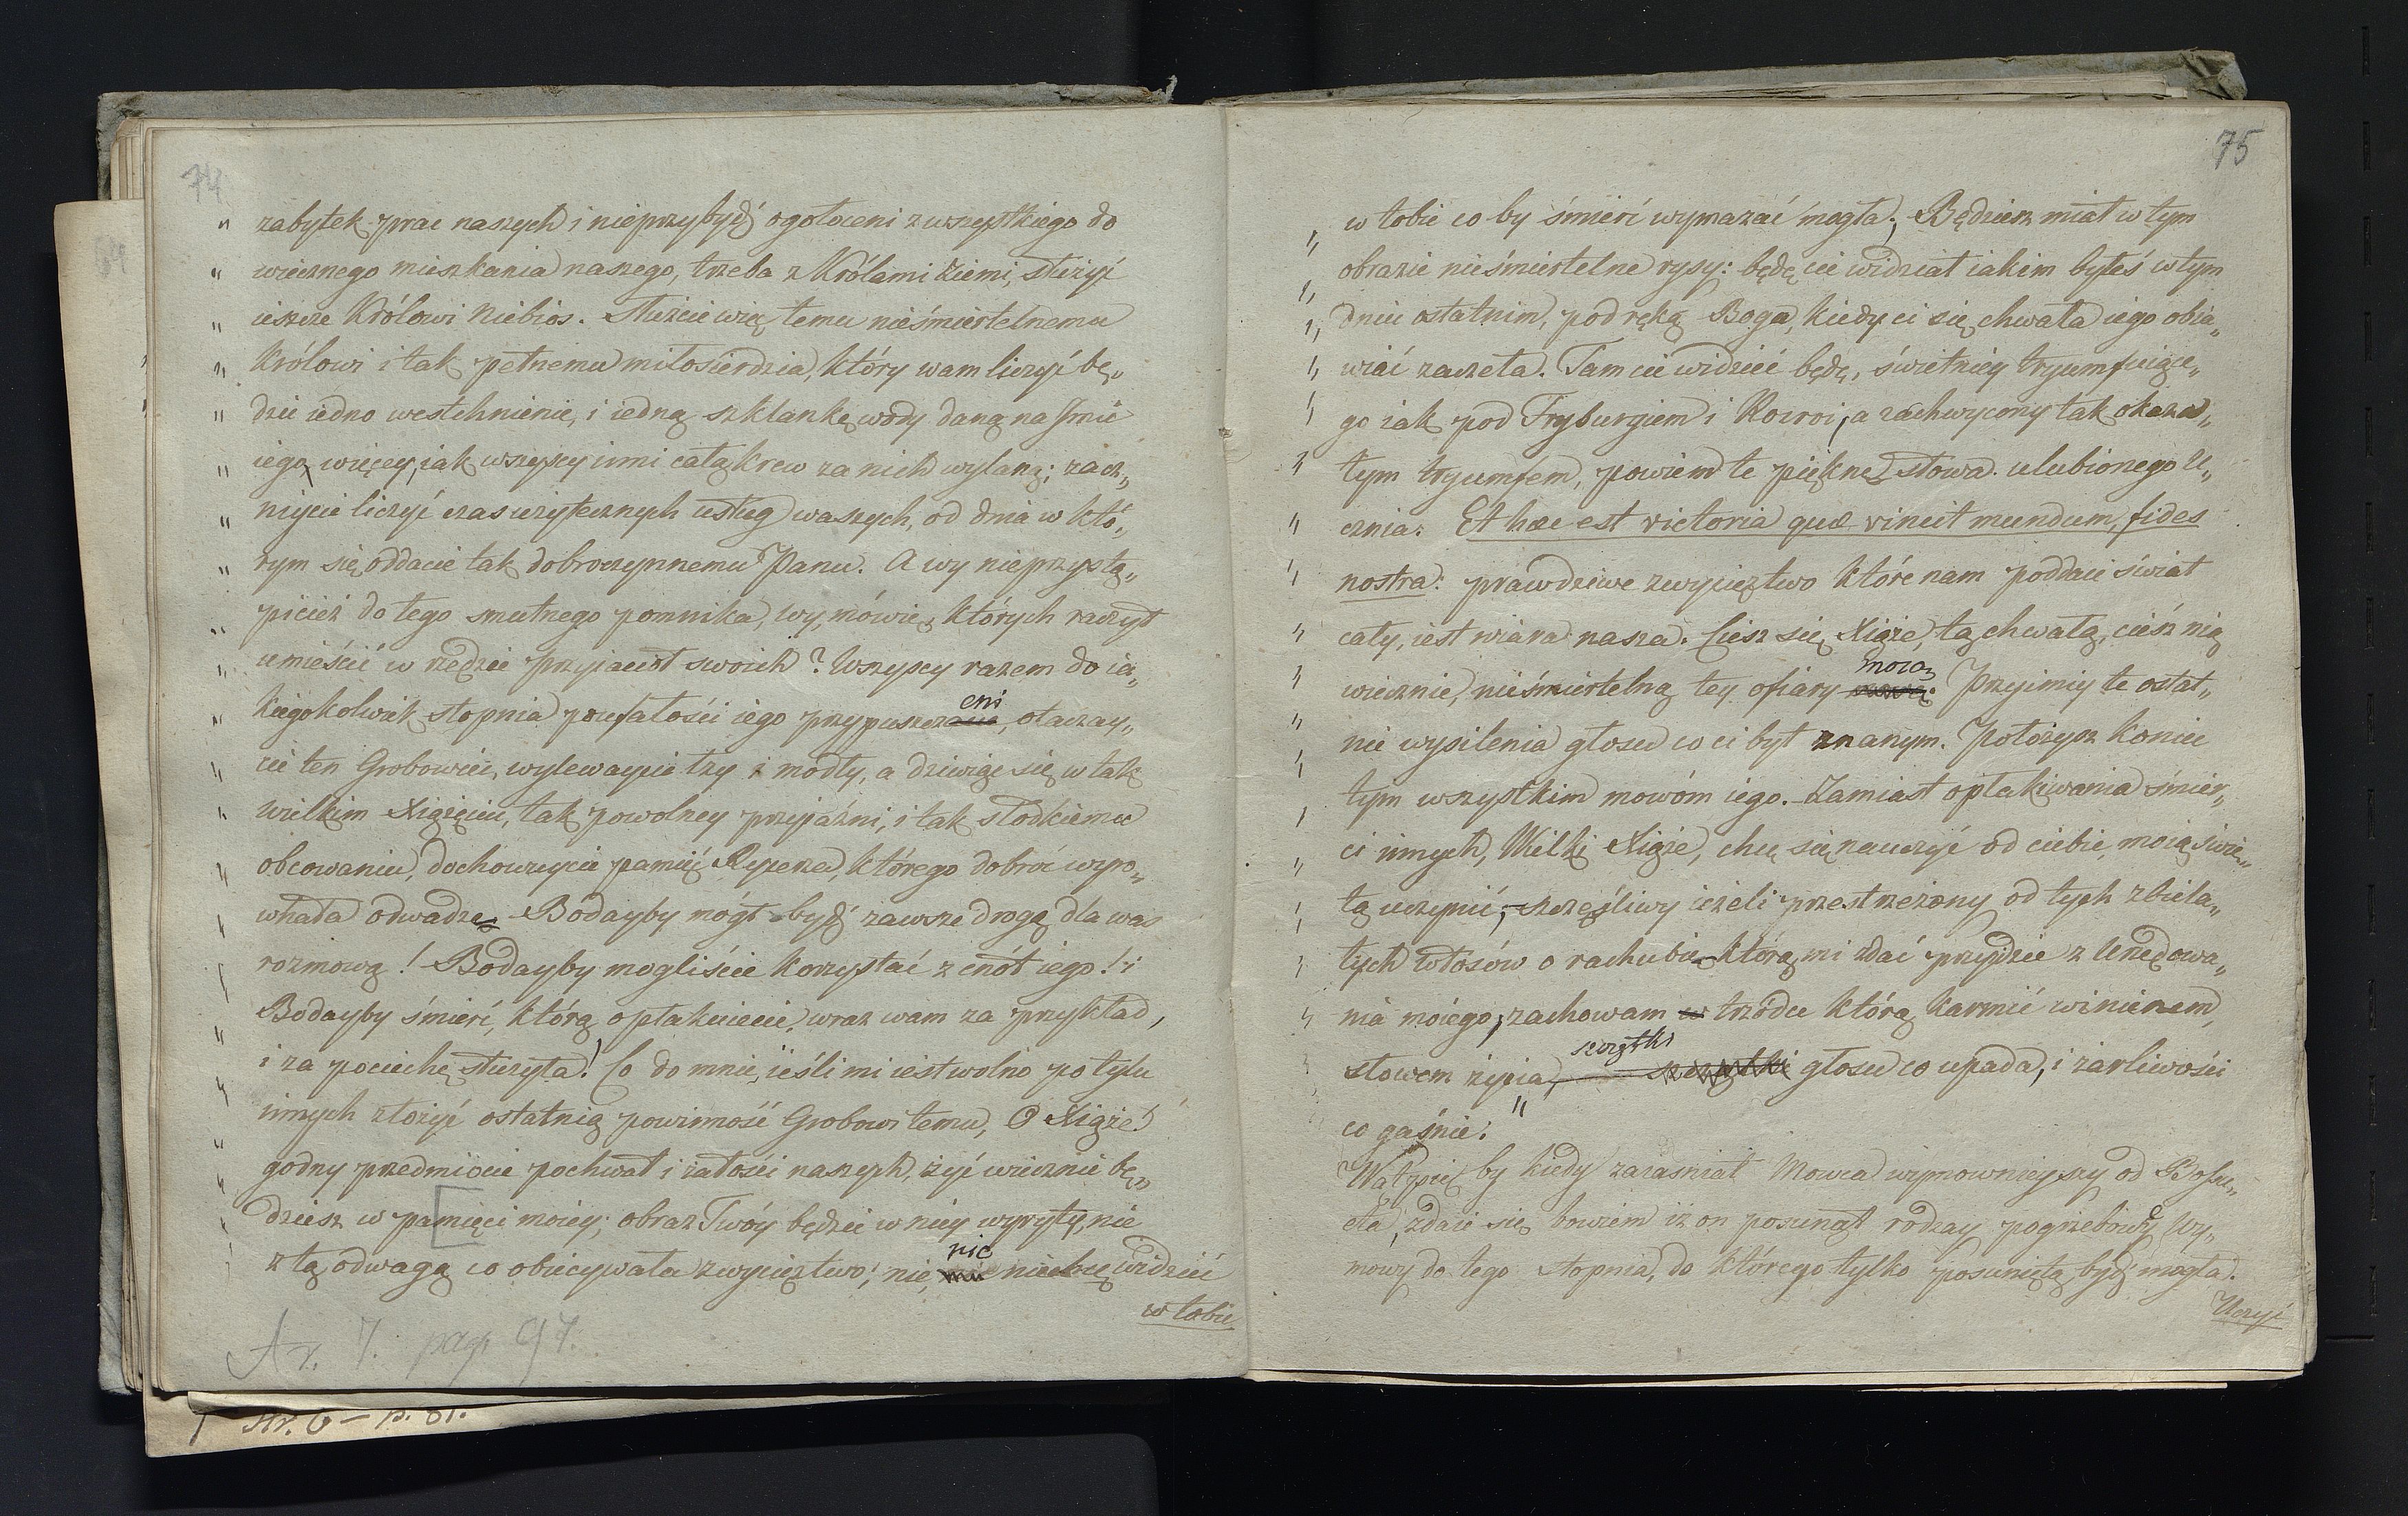 74
„ zabytek prac naszych i nieprzybydź ogołoceni zwszystkiego do
„ wiecznego mieszkania naszego, trzeba z Królami Ziemi, służyć
„ ieszcze Królowi Niebios. Służcie więc temu nieśmiertelnemu
„ Królowi i tak pełnemu miłosierdzia, który wam liczyć bę„
„ dzie iedno westchnienie, i iedną szklankę wody daną na Jmie
„ iego, więcey, iak wszyscy inni całą krew za nich wylaną; zacz„
„ niycie liczyć czas użytecznych usług waszych, od dnia w któ„
„ rym się oddacie tak dobroczynnemu Panu. A wy nieprzystą„
„ picież do tego smutnego pomnika, wy, mówię, których raczył
„ umieścić w rzędzie przyiaciół swoich? Wszyscy razem do ia„
„ kiegokolwiek stopnia poufałości iego przypuszczeni, otaczay„
„ cie ten Grobowiec, wylewaycie łzy i modły, a dziwiąc się w tak
„ wielkim Xiążęciu, tak powolney przyiaźni, i tak słodkiemu
„ obcowaniu, dochowaycie pamięć Rycerza, którego dobroć wyro„
„ wnała odwadze. Bodayby mógł bydź zawsze drogą dla was
„ rozmową! Bodayby mogliście korzystać z cnót iego! i
„ Bodayby śmierć, którą opłakuiecie, wraz wam za przykład,
„ i za pociechę służyła! Co do mnie, ieśli mi iest wolno po tylu
„ innych złożyć ostatnią powinność Grobowi temu, O Xiąże!
„ godny przedmiocie pochwał i żałości naszych, żyć wiecznie bę„
„ dziesz w pamięci moiey; obraz Twóy będzie w niey wyryty, nie
„ z tą odwagą co obiecywała zwycięztwo; nie, nic niechcę widzieć
w tobie
Ar. 7. pag. 97.
Ar. 6 – p. 81.
75
„ w tobie co by śmierć wymazać mogła; Będziesz miał w tym
„ obrazie nieśmiertelne rysy: będę cię widział iakim byłeś w tym
„ dniu ostatnim, pod ręką Boga, kiedy ci się chwała iego obia„
„ wiać zaczeła. Tam cię widzieć będę, świetniey tryumfuiące„
„ go iak pod Fryburgiem i Rocroi, a zachwycony tak okaza„
„ łym tryumfem, powiem te piękne słowa ulubionego U„
„ cznia: Et hæc est victoria quæ vincit mundum, fides
„ nostra: prawdziwe zwycięztwo które nam poddaie świat
„ cały, iest wiara nasza. Ciesz się Xiąże, tą chwałą, ciesz nią
„ wiecznie, nieśmiertelną tey ofiary mocą. Przyimiy te ostat„
„ nie wysilenia głosu co ci był znanym. Położysz koniec
„ tym wszystkim mowóm iego. Zamiast opłakiwania śmier„
„ ci innych, Wielki Xiąże, chcę się nauczyć od ciebie, moią świę„
„ tą uczynić; szczęśliwy ieżeli przestrzeżony od tych zbiela„
„ łych włosów o rachubie którą mi zdać przydzie z Urzędowa„
„ nia moiego, zachowam trzódce którą karmić winienem,
„ słowem życia, szczątki głosu co upada, i żarliwości
co gaśnie."
Wątpię by kiedy zaiaśniał Mowca wymownieyszy od Bossu„
eta, zdaie się bowiem iż on posunął rodzay pogrzebowéy Wy„
mowy do tego stopnia, do którego tylko posuniętą bydź mogła.
Uczyć